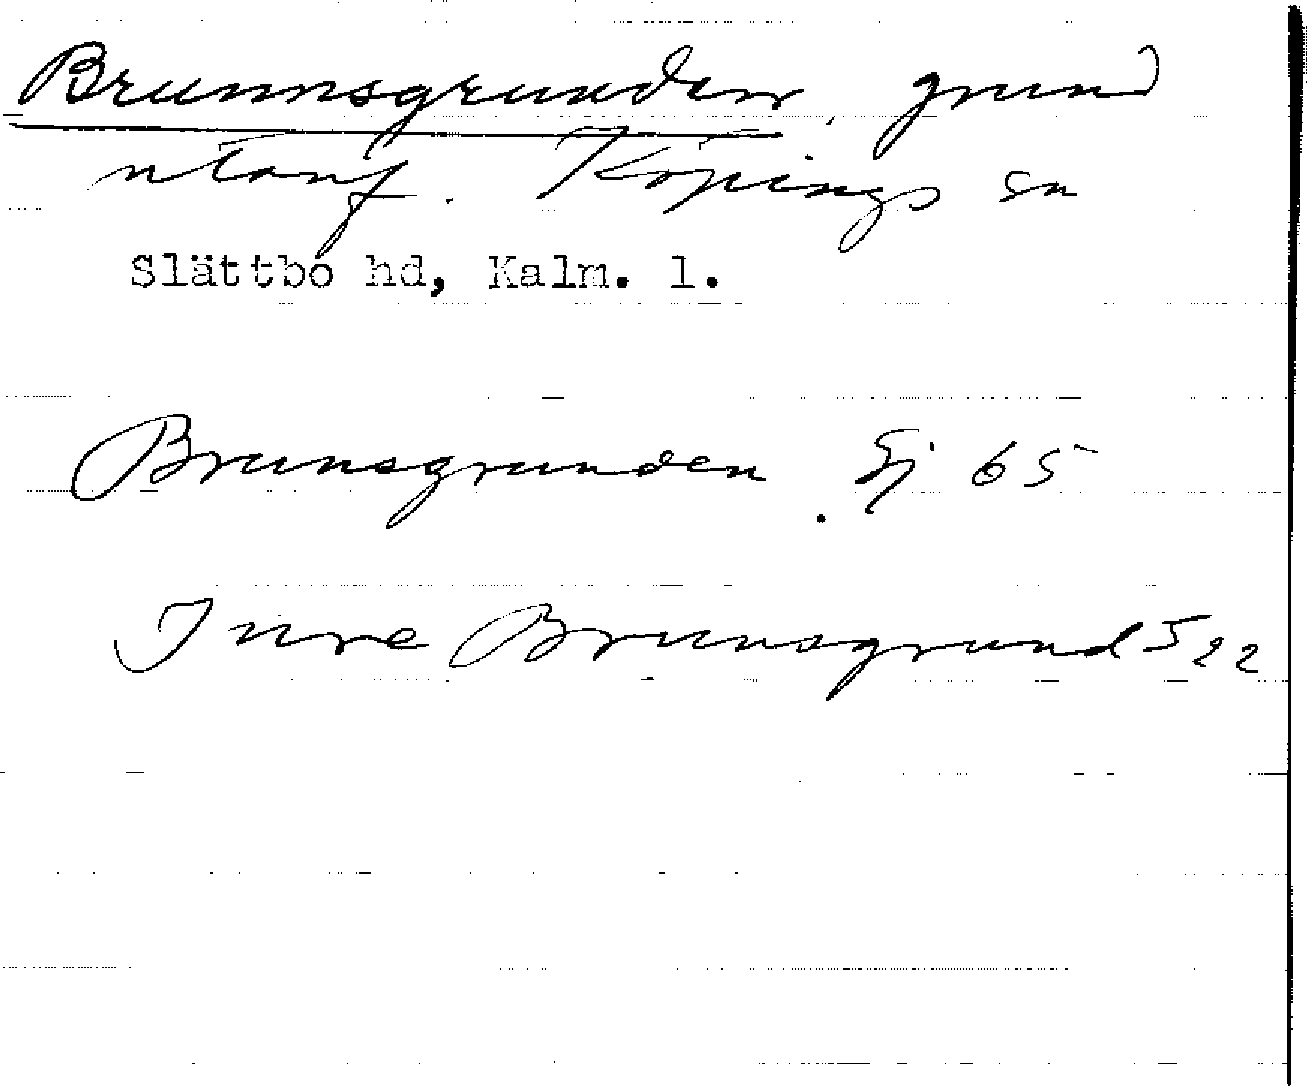 Brunnsgrunden, grund
utanf. Köpings sn
Slättbo hd, Kalm. l.
Brunsgrunden. Ej 65
Inre Brunsgrund 522